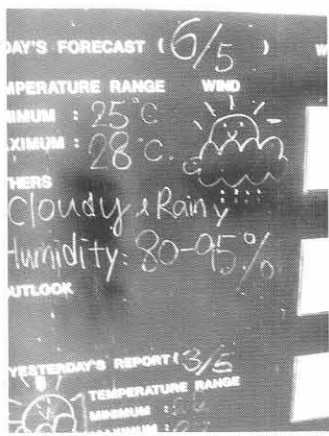 DAY'S FORECAST (6/5)
MPERATURE RANGE WIND
NIMUM : 25°C
XIMUM : 28°C.
THERS
Cloudy & Rainy
Humidity: 80-95%
OUTLOOK
YESTERDAY'S REPORT (3/5
TEMPERATURE RANGE
MINIMUM :
MAXIMUM :